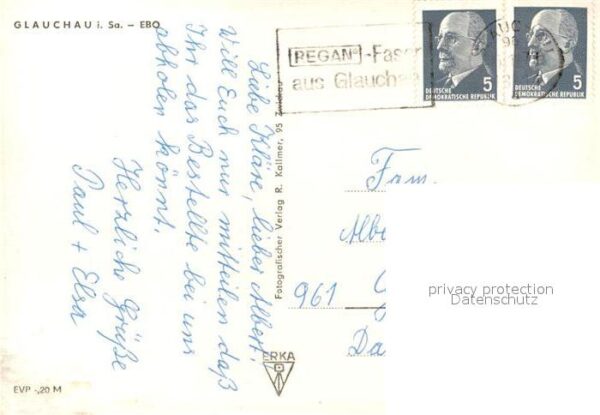 GLAUCHAU i. Sa. – EBO
Liebe Kläre, lieber Albert!
Will Euch nur mitteilen daß
Ihr das Bestellte bei uns
abholen könnt.
Herzliche Grüße
Paul + Elsa
EVP -,20 M
Fotografischer Verlag R. Kallmer, 95 Zwickau
ERKA
REGAN® -Faser
aus Glauchau
5
DEUTSCHE
DEMOKRATISCHE REPUBLIK
5
DEUTSCHE
DEMOKRATISCHE REPUBLIK
Fam.
Albe
961
Da
privacy protection
Datenschutz